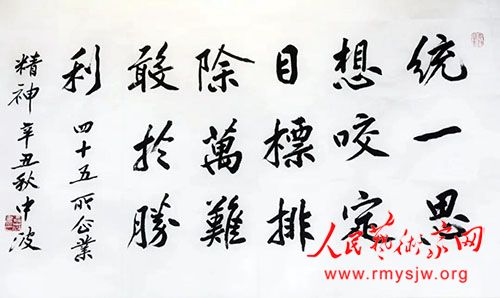 統一思
想咬定
目標排
除萬難
敢於勝
利 四十五所企業
精神 辛丑秋中波
人民藝術家网
www.rmysjw.org